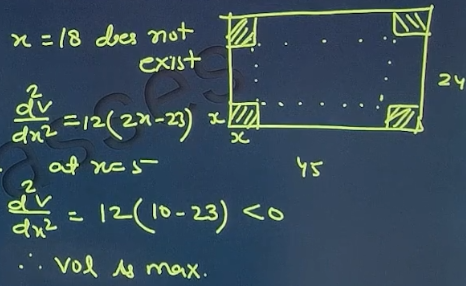 x = 18 does not
exist
d²v/dx² = 12(2x-23)
at x=5
d²v/dx² = 12(10-23) <0
∴ Vol is max.
x
x
24
45